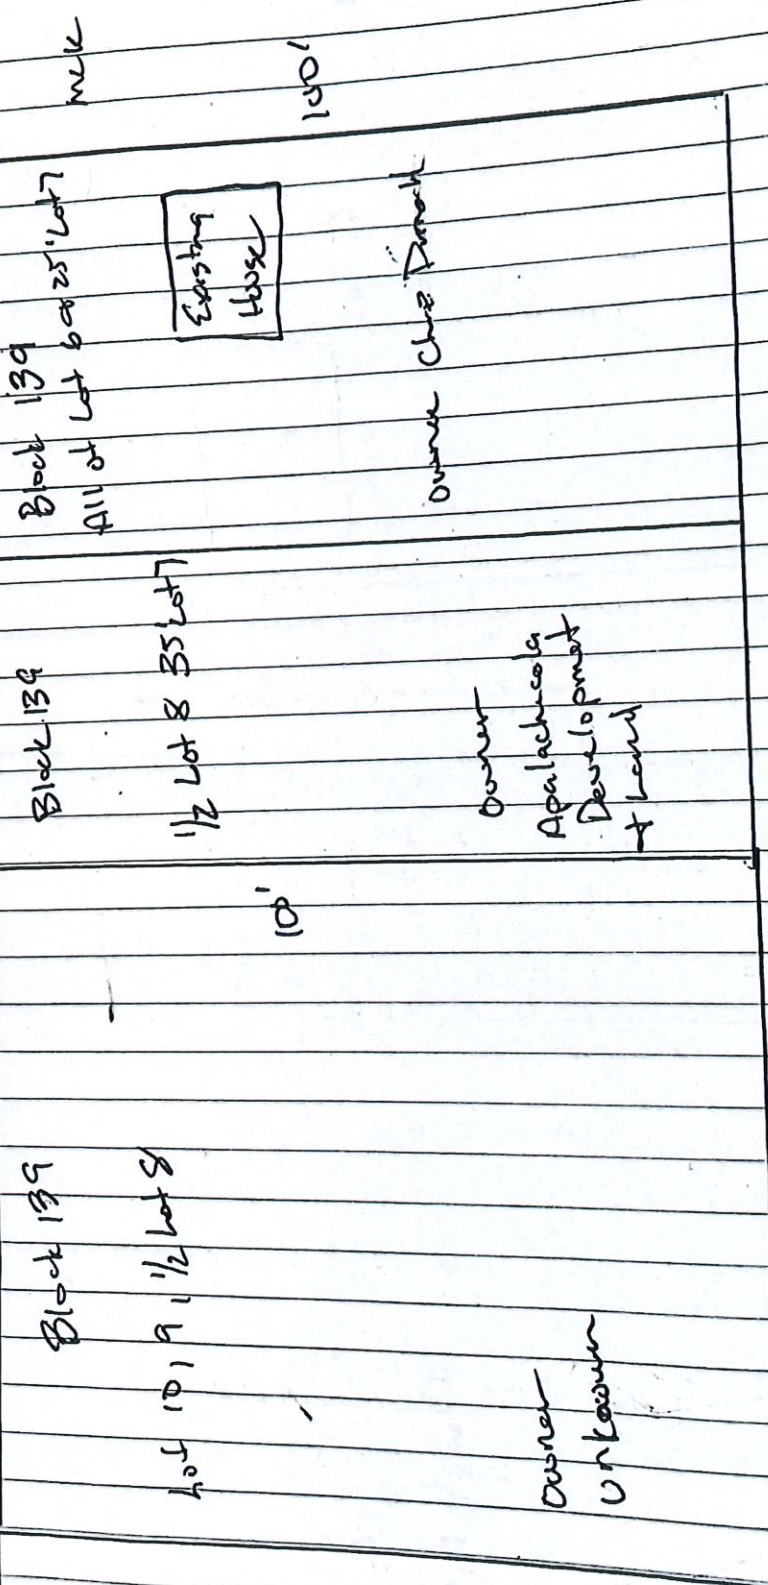 Block 139
Lot 10, 9, 1/2 Lot 8
Owner
Unknown
10'
Block 139
1/2 Lot 8 35' Lot 7
Owner
Apalachicola
Development
+ Land
Block 139
All of Lot 6 & 25' Lot 7
Existing
House
Owner
MLK
100'